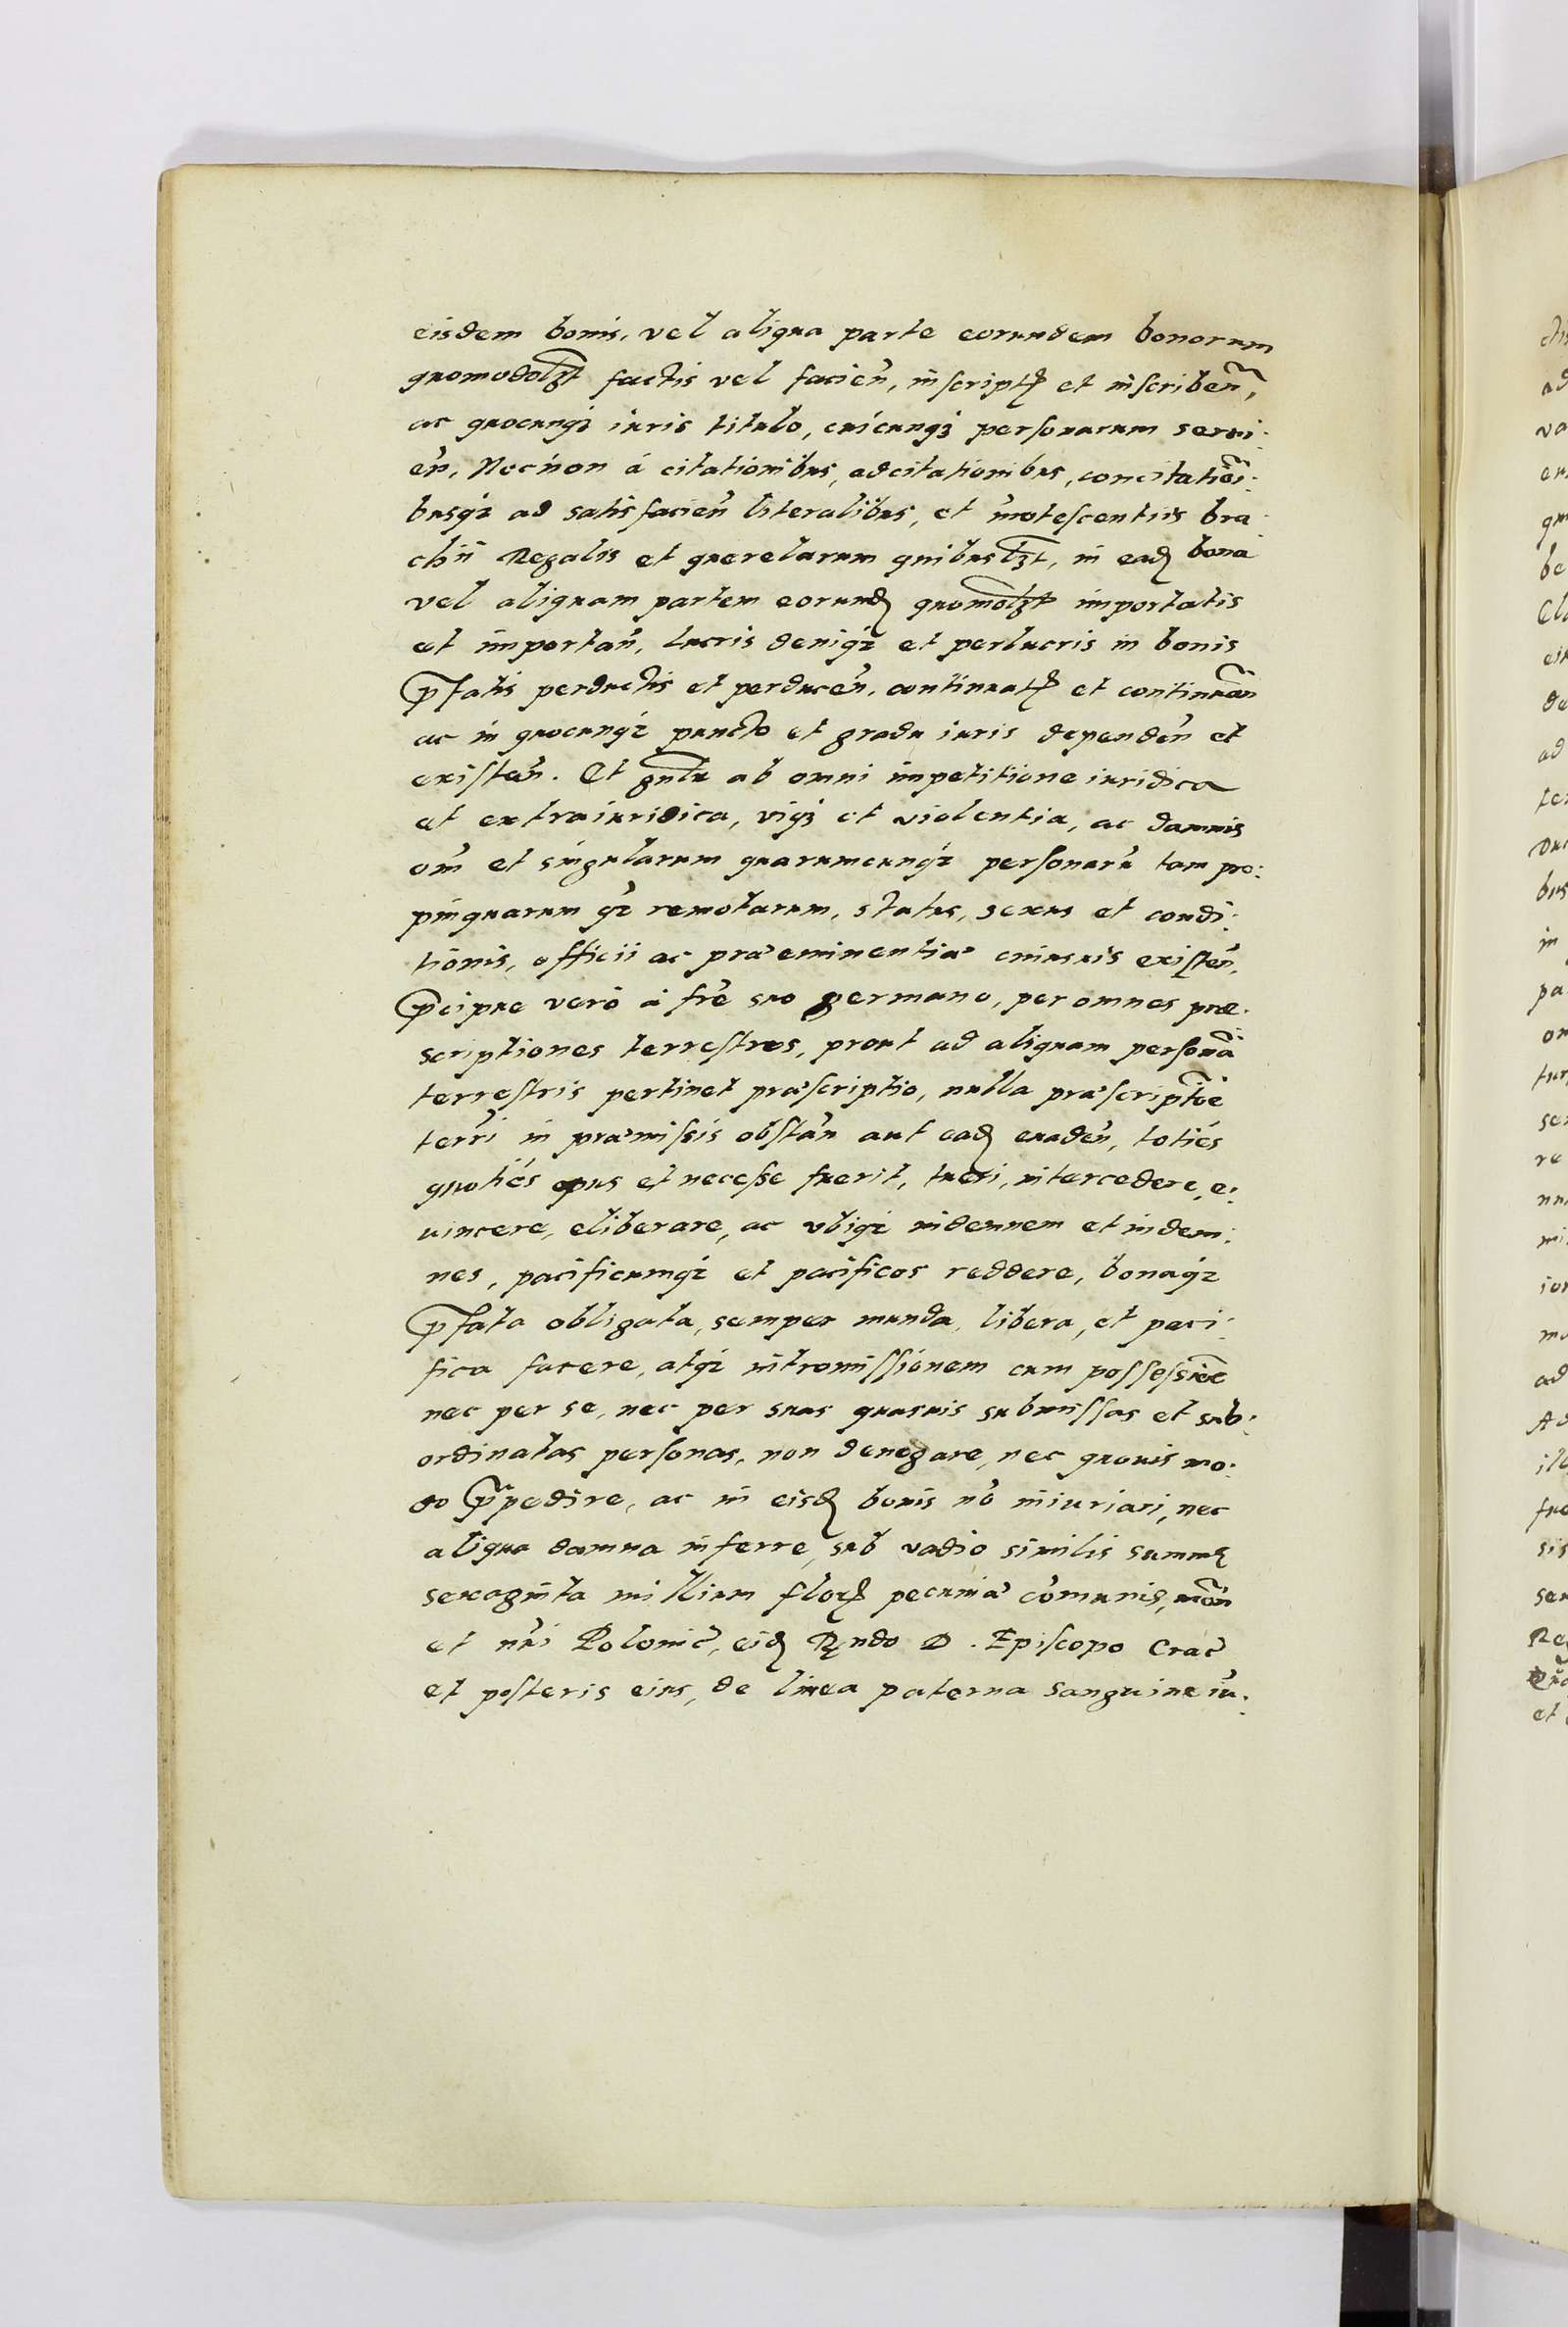 eisdem bonis, vel aliqua parte eorundem bonorum
quomodolꝫt factis vel facien̄, inscriptꝝ et inscriben̄,
ac quocunqꝫ iuris titulo, cuicunqꝫ personarum servi:
en̄, Necnon á citationibus, adcitationibus, concitatiōi:
busqꝫ ad satisfacien̄ literalibus, et iñotescentiis bra
chii Regalis et querelarum quibuslꝫt, in eaꝺ bona
vel aliquam partem eorunꝺ quomōlꝫt importatis
et importan̄, lucris deniqꝫ et perlucris in bonis
p̄fatis perductis et perducen̄, continuatꝝ et continuan̄
ac in quocunqꝫ puncto et gradu iuris dependen̄ et
existen̄. Et gn̄lr ab omni impetitione iuridica
et extraiuridica, viqꝫ et violentia, ac damnis
om̄ et singularum quarumcunqꝫ personarū tam pro:
pinquarum qꝫ remotarum, status, sexus et condi:
tionis, officii ac præeminentiæ cuiusuis existen̄,
p̄cipue verò à fr̄e suo germano, per omnes præ:
scriptiones terrestres, prout ad aliquam personā
terrestris pertinet præscriptio, nulla præscriptiōe
terr̄i in præmissis obstan̄ aut eaꝺ euaden̄, totiés
quotiés opus et necesse fuerit, tueri, intercedere, e:
uincere, eliberare, ac vbiqꝫ indemnem et indem:
nes, pacificumqꝫ et pacificos reddere, bonaqꝫ
p̄fata obligata, semper munda, libera, et paci:
fica facere, atqꝫ intromissionem cum possessiōe
nec per se, nec per suas quasuis submissas et sub:
ordinatas personas, non denegare, nec quouis mo:
do p̄pedire, ac in eisꝺ bonis nō iniuriari, nec
aliqua damna inferre, sub vadio similis summę
sexaginta millium florꝝ pecuniæ cōmunis, mon̄
et nr̄i Polonic̄, eiꝺ Rn̄do D. Episcopo Crac̄
et posteris eius, de linea paterna sanguine iu: